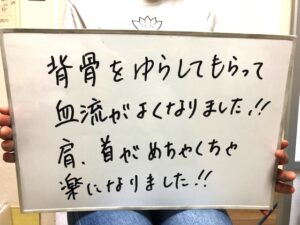 背骨をゆらしてもらって
血流がよくなりました!!
肩、首がめちゃくちゃ
楽になりました!!